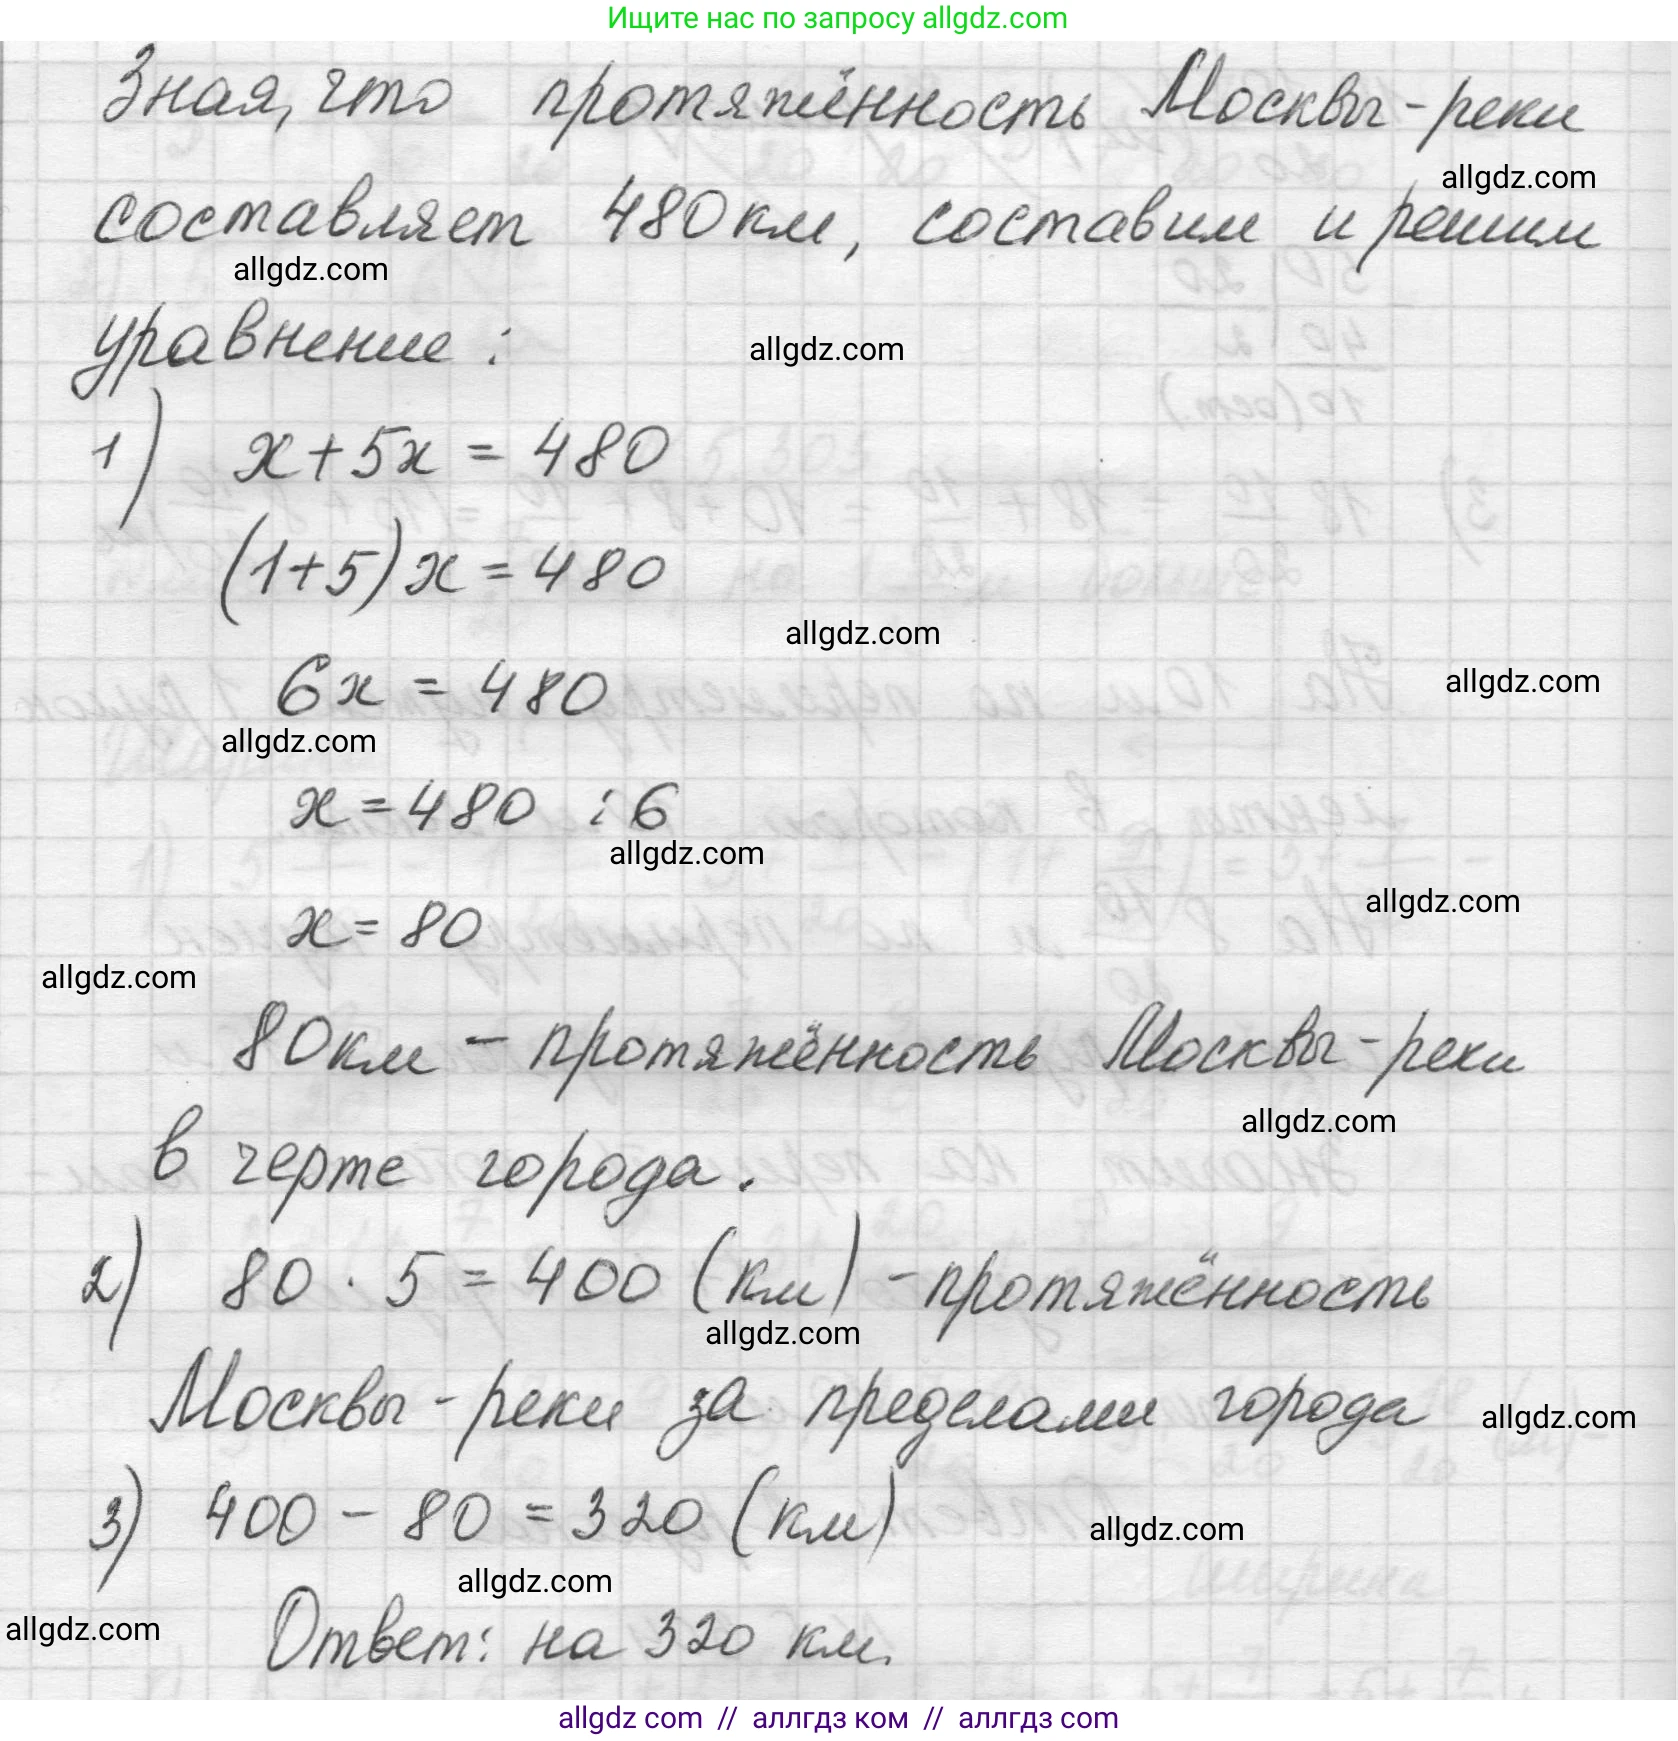 Ищите нас по запросу allgdz.com
Зная, что протяжённость Москвы-реки
allgdz.com
составляет 480 км, составим и решим
allgdz.com
уравнение:
allgdz.com
1) x+5x = 480
(1+5)x = 480
allgdz.com
6x = 480
allgdz.com
allgdz.com
x = 480 : 6
allgdz.com
allgdz.com
x = 80
allgdz.com
80 км – протяжённость Москвы-реки
allgdz.com
в черте города.
2) 80 · 5 = 400 (км) – протяжённость
allgdz.com
Москвы-реки за пределами города
allgdz.com
3) 400 – 80 = 320 (км)
allgdz.com
allgdz.com
allgdz.com
Ответ: на 320 км.
allgdz com // аллгдз ком // аллгdз com